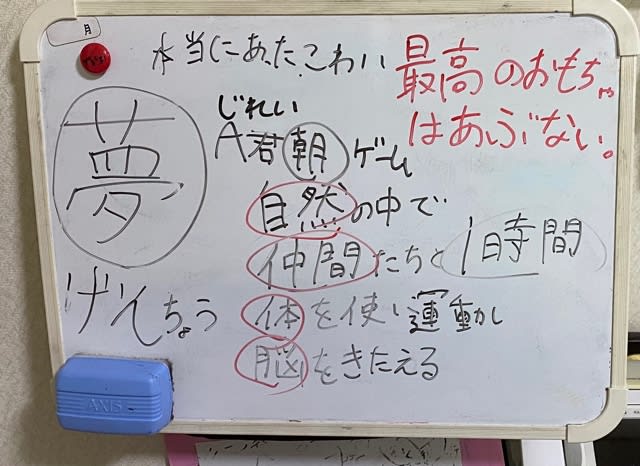 月
本当にあったこわい
最高のおもちゃ
はあぶない。
じれい
A君 朝 ゲーム
夢
自然の中で
仲間たちと1時間
げんちょう
体を使い運動し
脳をきたえる
AXIS